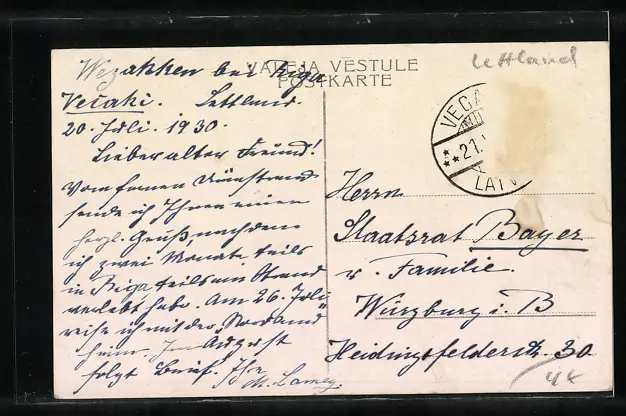 VAĻĒJA VESTULE
POSTKARTE
Lettland
Wezakken bei Riga
Večaki. Lettland.
20. Juli. 1930.
Lieber alter Freund!
Vom fernen Dünastrand
sende ich Ihnen einen
herzl. Gruß, nachdem
ich zwei Monate teils
in Riga teils am Strand
verlebt habe. Am 26. Juli
reise ich mit der „Nordland"
heim. Im August
folgt Brief. Ihr
VEGA
21.
LATV
Herrn
Staatsrat Bayer
u. Familie.
Würzburg i. B
Heidingsfelderstr. 30.